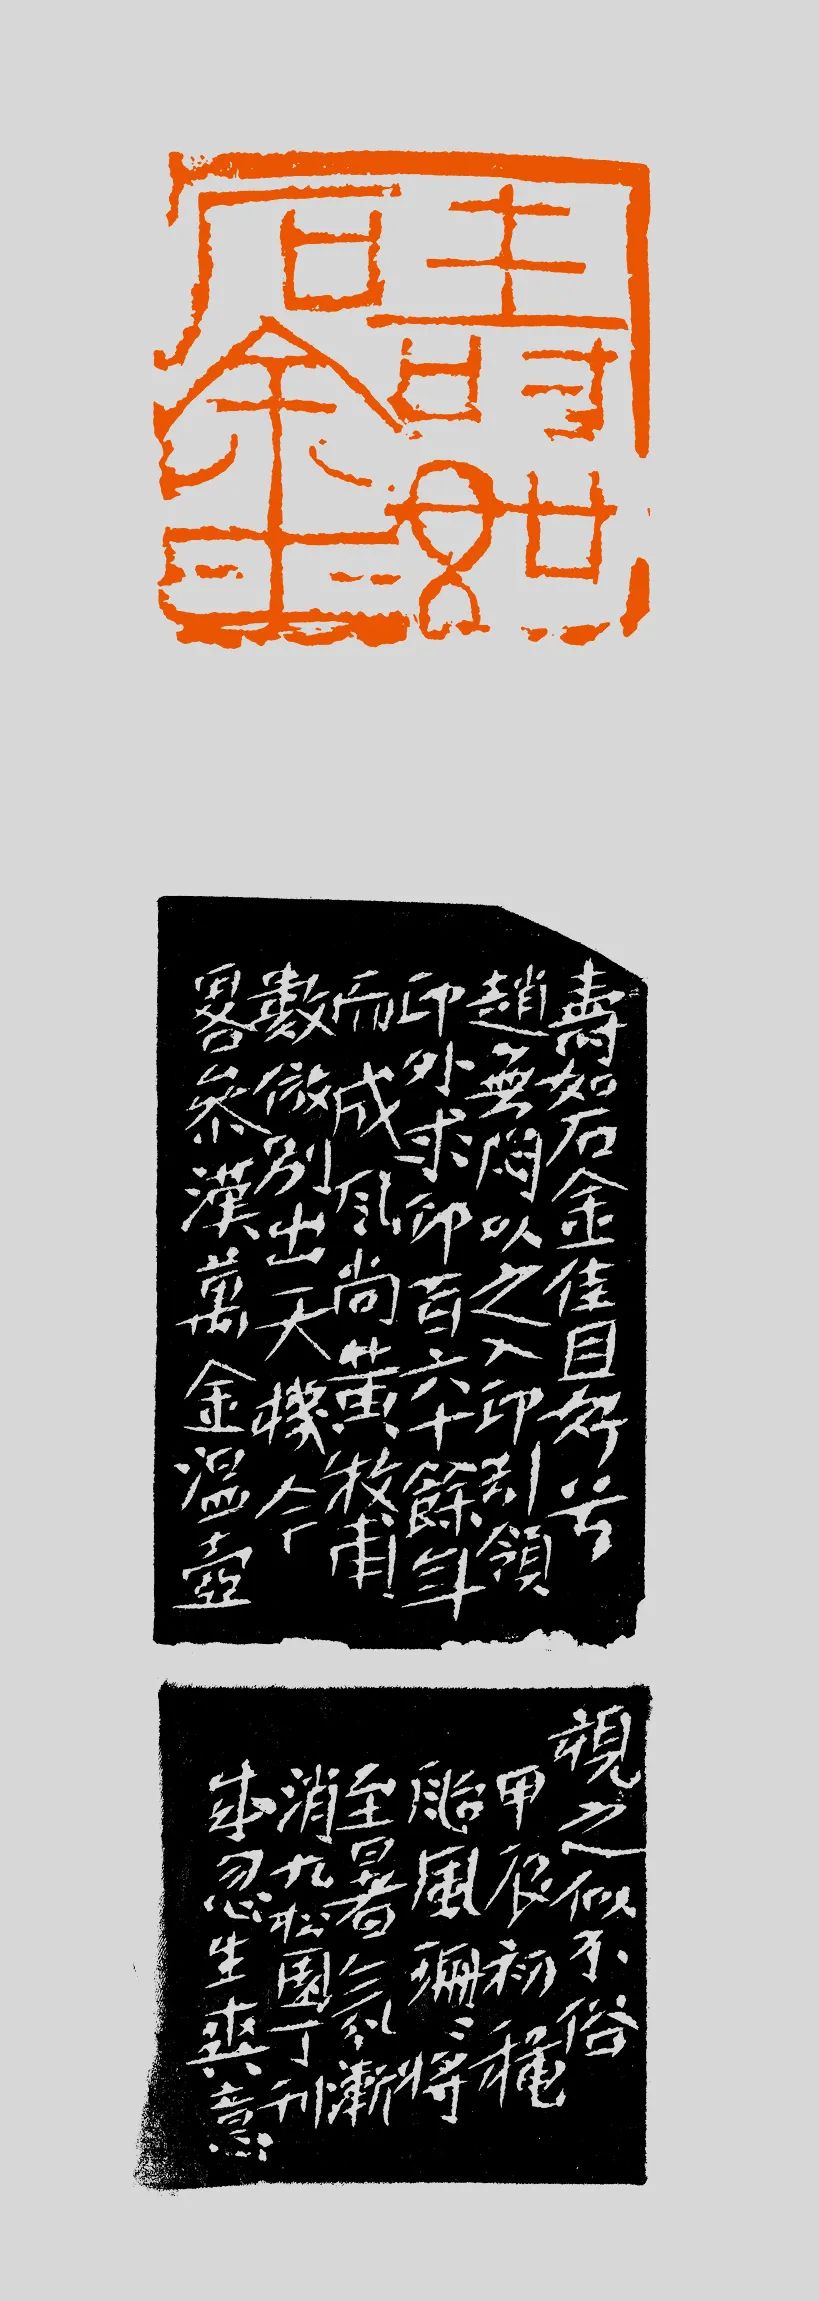 壽如
石金
壽如石金佳且好兮
趙無悶以之入印引領
印外求印百六十餘年
而成風尚黃牧甫
數倣別出天機今
畧參漢萬金溫壺
視之似不俗
甲辰初穐
颱風珊〻將
至暑氣漸
消九松園丁刊
成忽生爽意